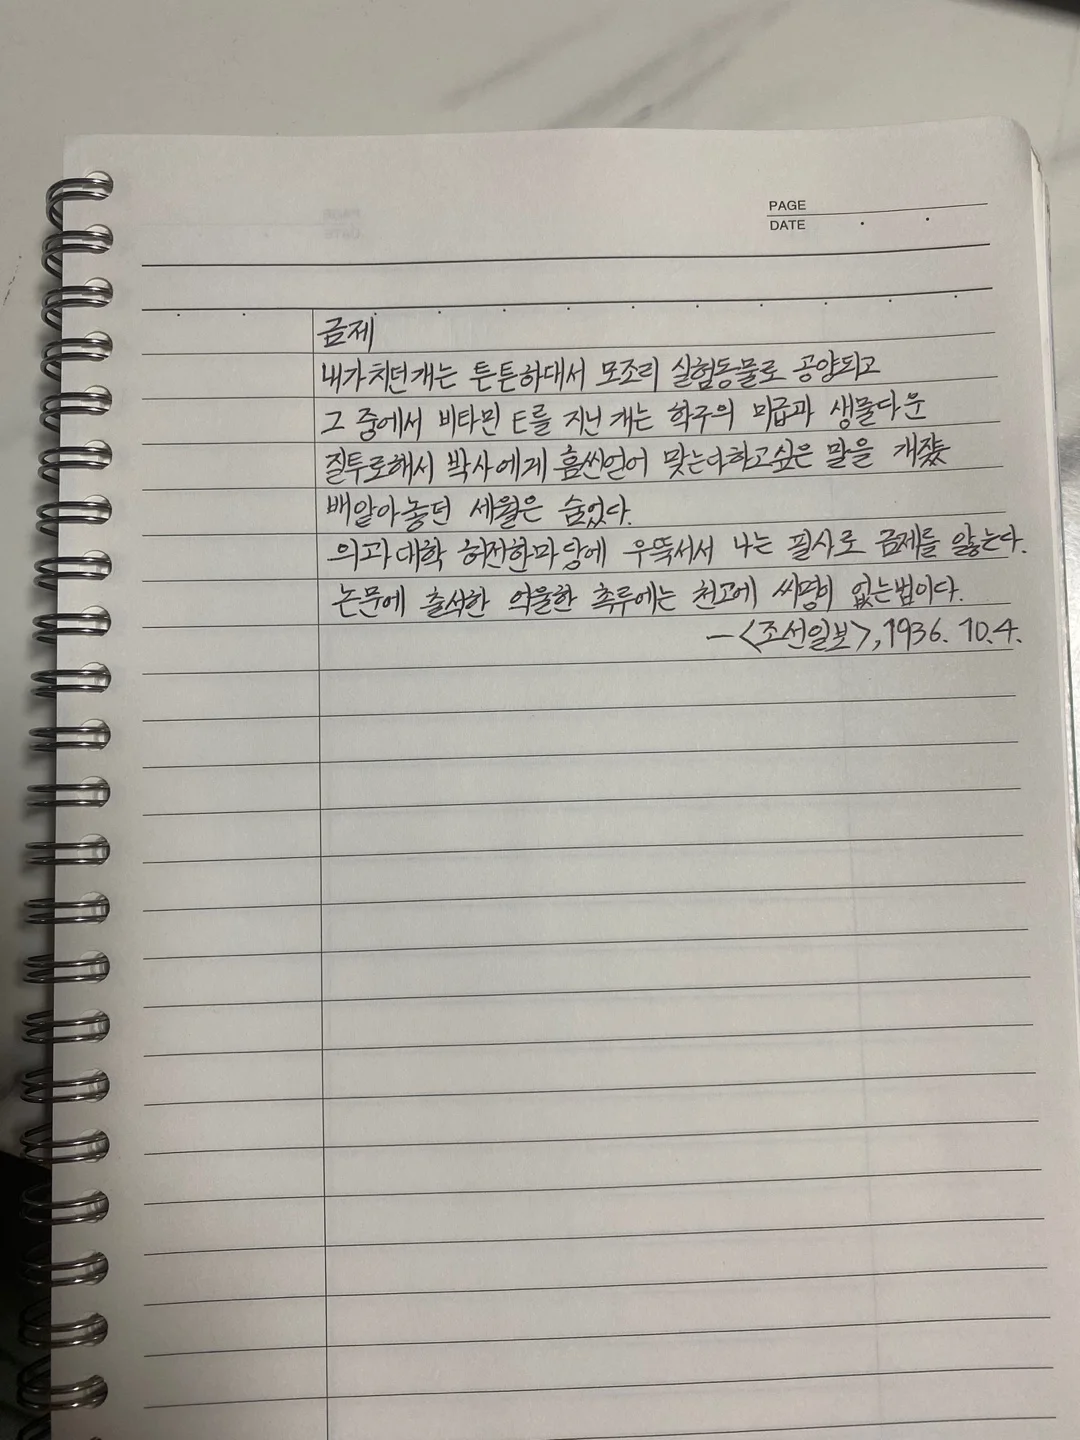 PAGE
DATE
금제
내가치던개는 튼튼하대서 모조리 실험동물로 공양되고
그 중에서 비타민 E를 지닌 개는 학구의 미급과 생물다운
질투로해서 박사에게 흠씬얻어 맞는다하고싶은 말을 개짖듯
배앝아놓던 세월은 숨었다.
의과대학 허전한마당에 우뚝서서 나는 필사로 금제를 앓는다.
논문에 출석한 억울한 촉루에는 천고에 씨명이 없는법이다.
—<조선일보>, 1936. 10. 4.